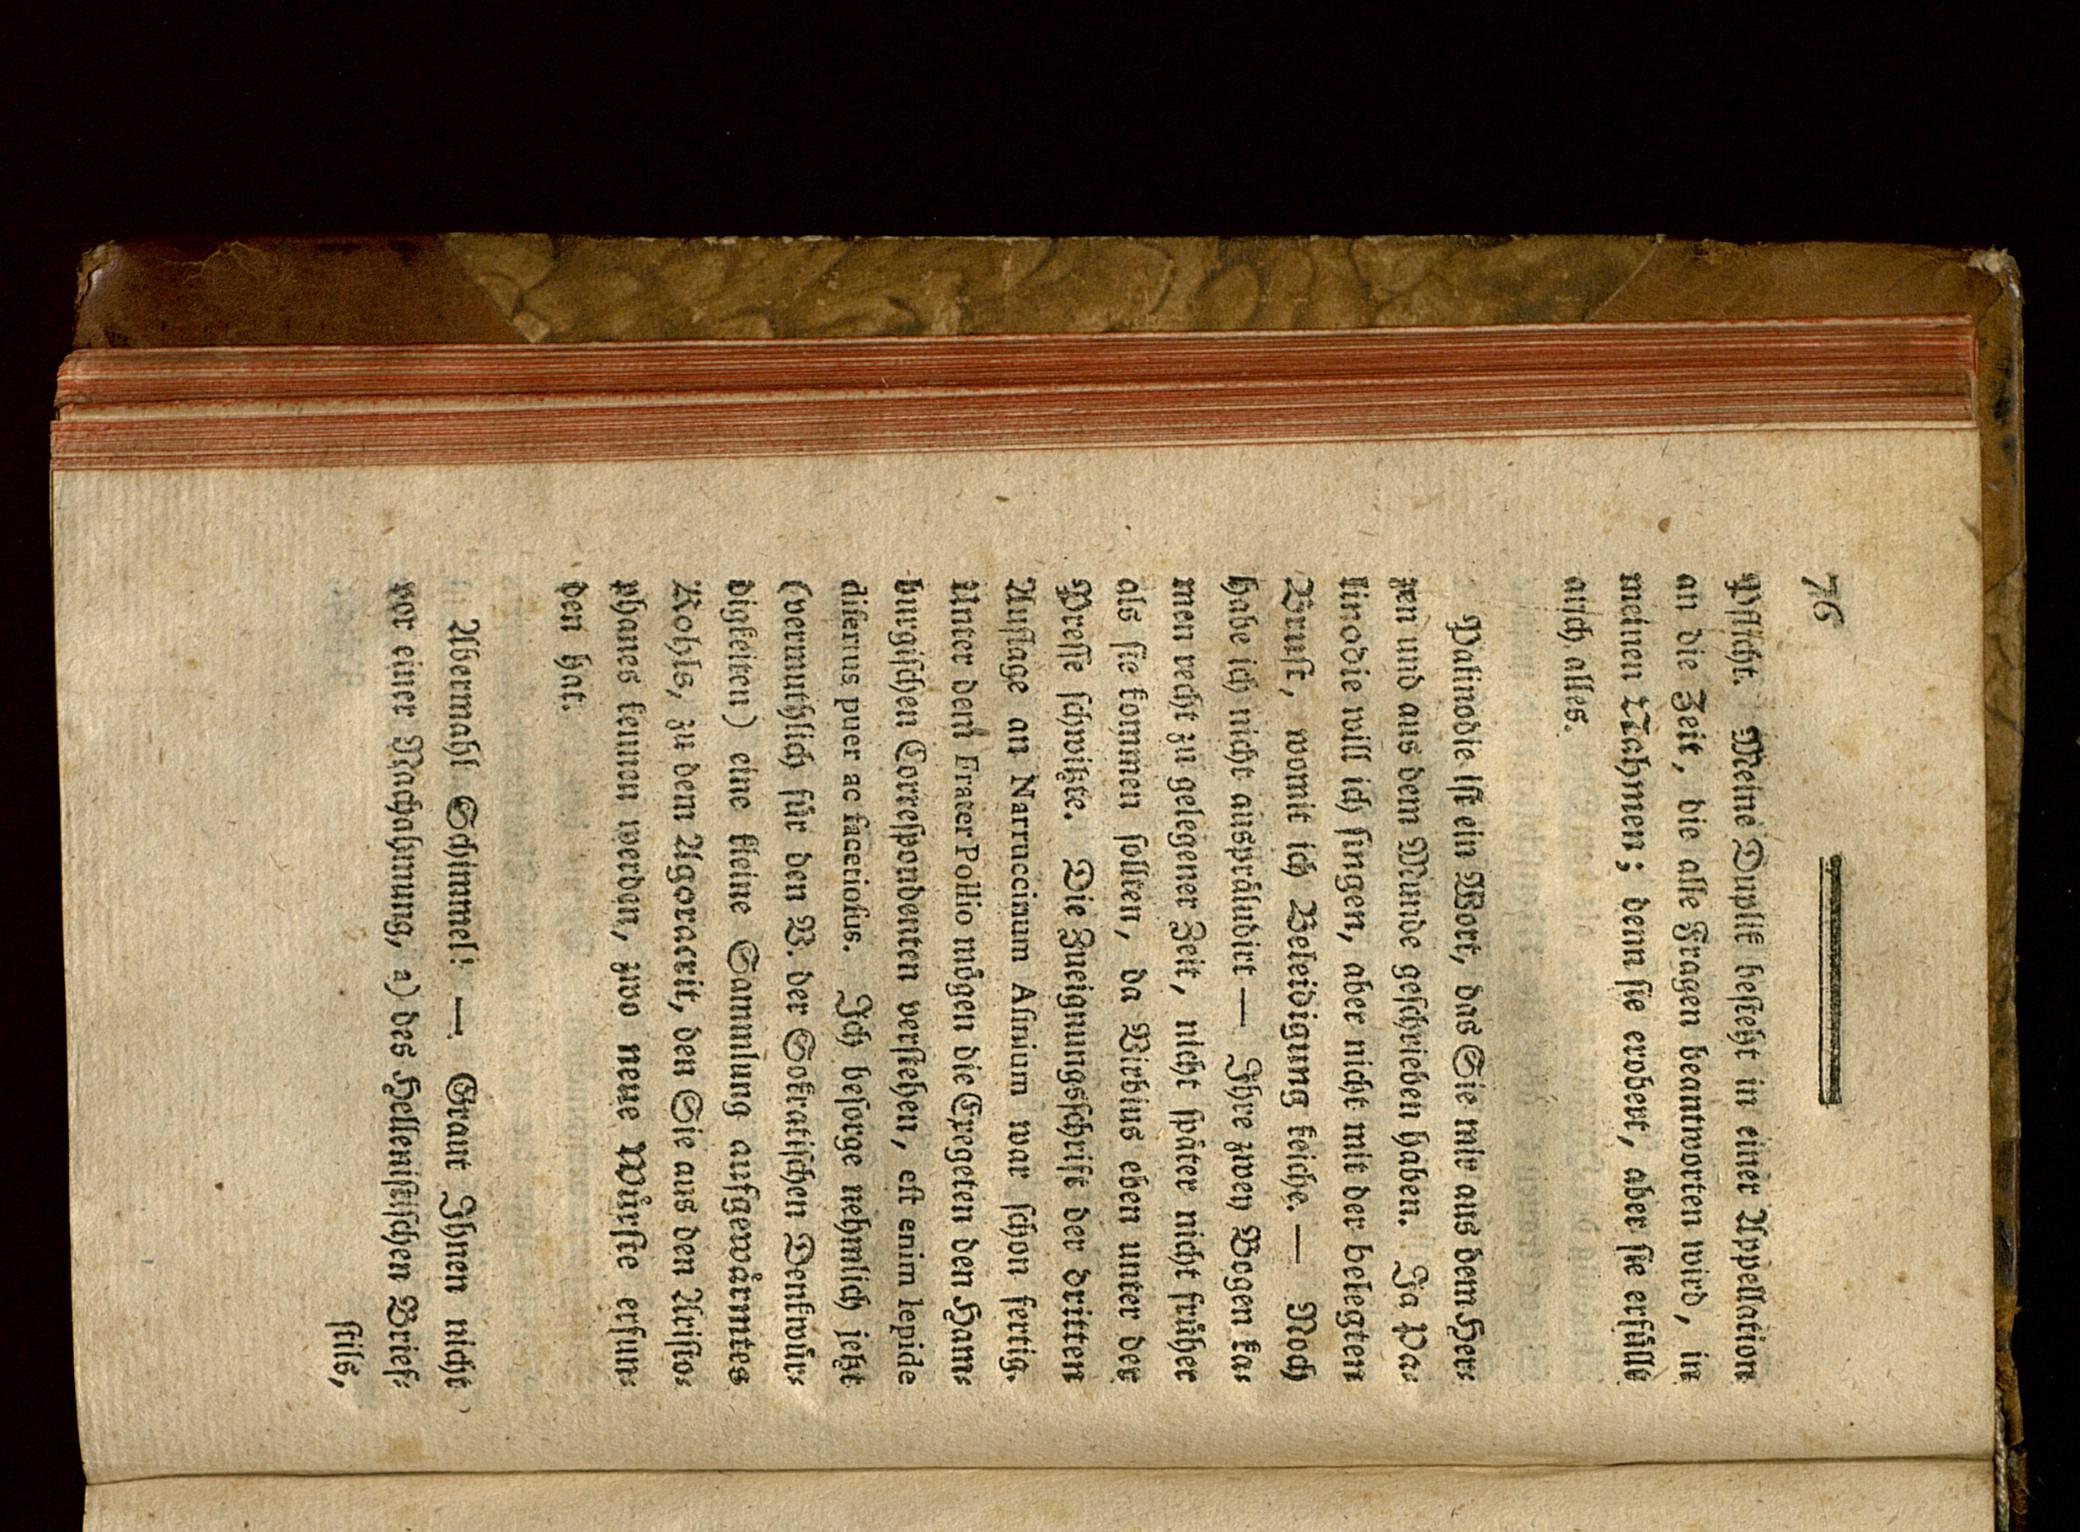 76
Pflicht. Meine Duplik besteht in einer Appellation
an die Zeit, die alle Fragen beantworten wird, in
meinen Nahmen; denn sie erobert, aber sie erfüllt
auch alles.
Palinodie ist ein Wort, das Sie mir aus dem Her⸗
zen und aus dem Munde geschrieben haben. Ja Pa⸗
linodie will ich singen, aber nicht mit der belegten
Brust, womit ich Beleidigung keiche. — Noch
habe ich nicht auspräludirt — Ihre zwey Bogen ka⸗
men recht zu gelegener Zeit, nicht später nicht früher
als sie kommen sollten, da Birbius eben unter der
Presse schwitzte. Die Zueignungsschrift der dritten
Auflage an Narruccinum Asinium war schon fertig.
Unter dem Frater Pollio mögen die Exegeten den Ham⸗
burgischen Correspondenten verstehen, est enim lepide
disertus puer ac facetiosus. Ich besorge nehmlich jetzt
(vermuthlich für den B. der Sokratischen Denkwür⸗
digkeiten) eine kleine Sammlung aufgewärmtes
Kohls, zu dem Agoracrit, den Sie aus den Aristo⸗
phanes kennen werden, zwo neue Würste erfun⸗
den hat.
Abermahl Schimmel! — Graut Ihnen nicht
vor einer Nachahmung, a) des Hellenistischen Brief⸗
stils,